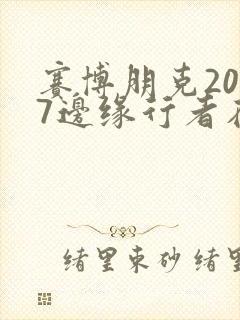 赛博朋克20
7邊缘行者
绪里束砂绪里